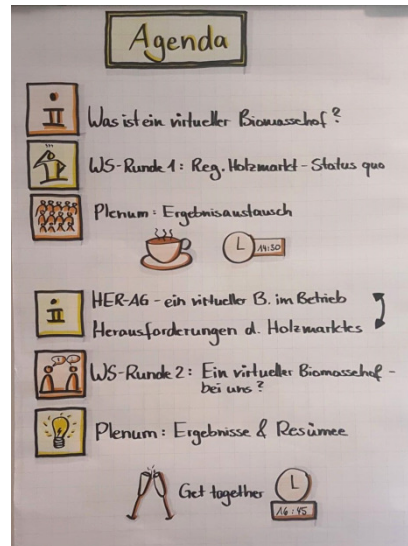 Agenda
Was ist ein virtueller Biomassehof?
WS-Runde 1: Reg. Holzmarkt - Status quo
Plenum: Ergebnisaustausch
14:30
HER-AG - ein virtueller B. im Betrieb
Herausforderungen d. Holzmarktes
WS-Runde 2: Ein virtueller Biomassehof -
bei uns?
Plenum: Ergebnisse & Resümee
Get together
16:45